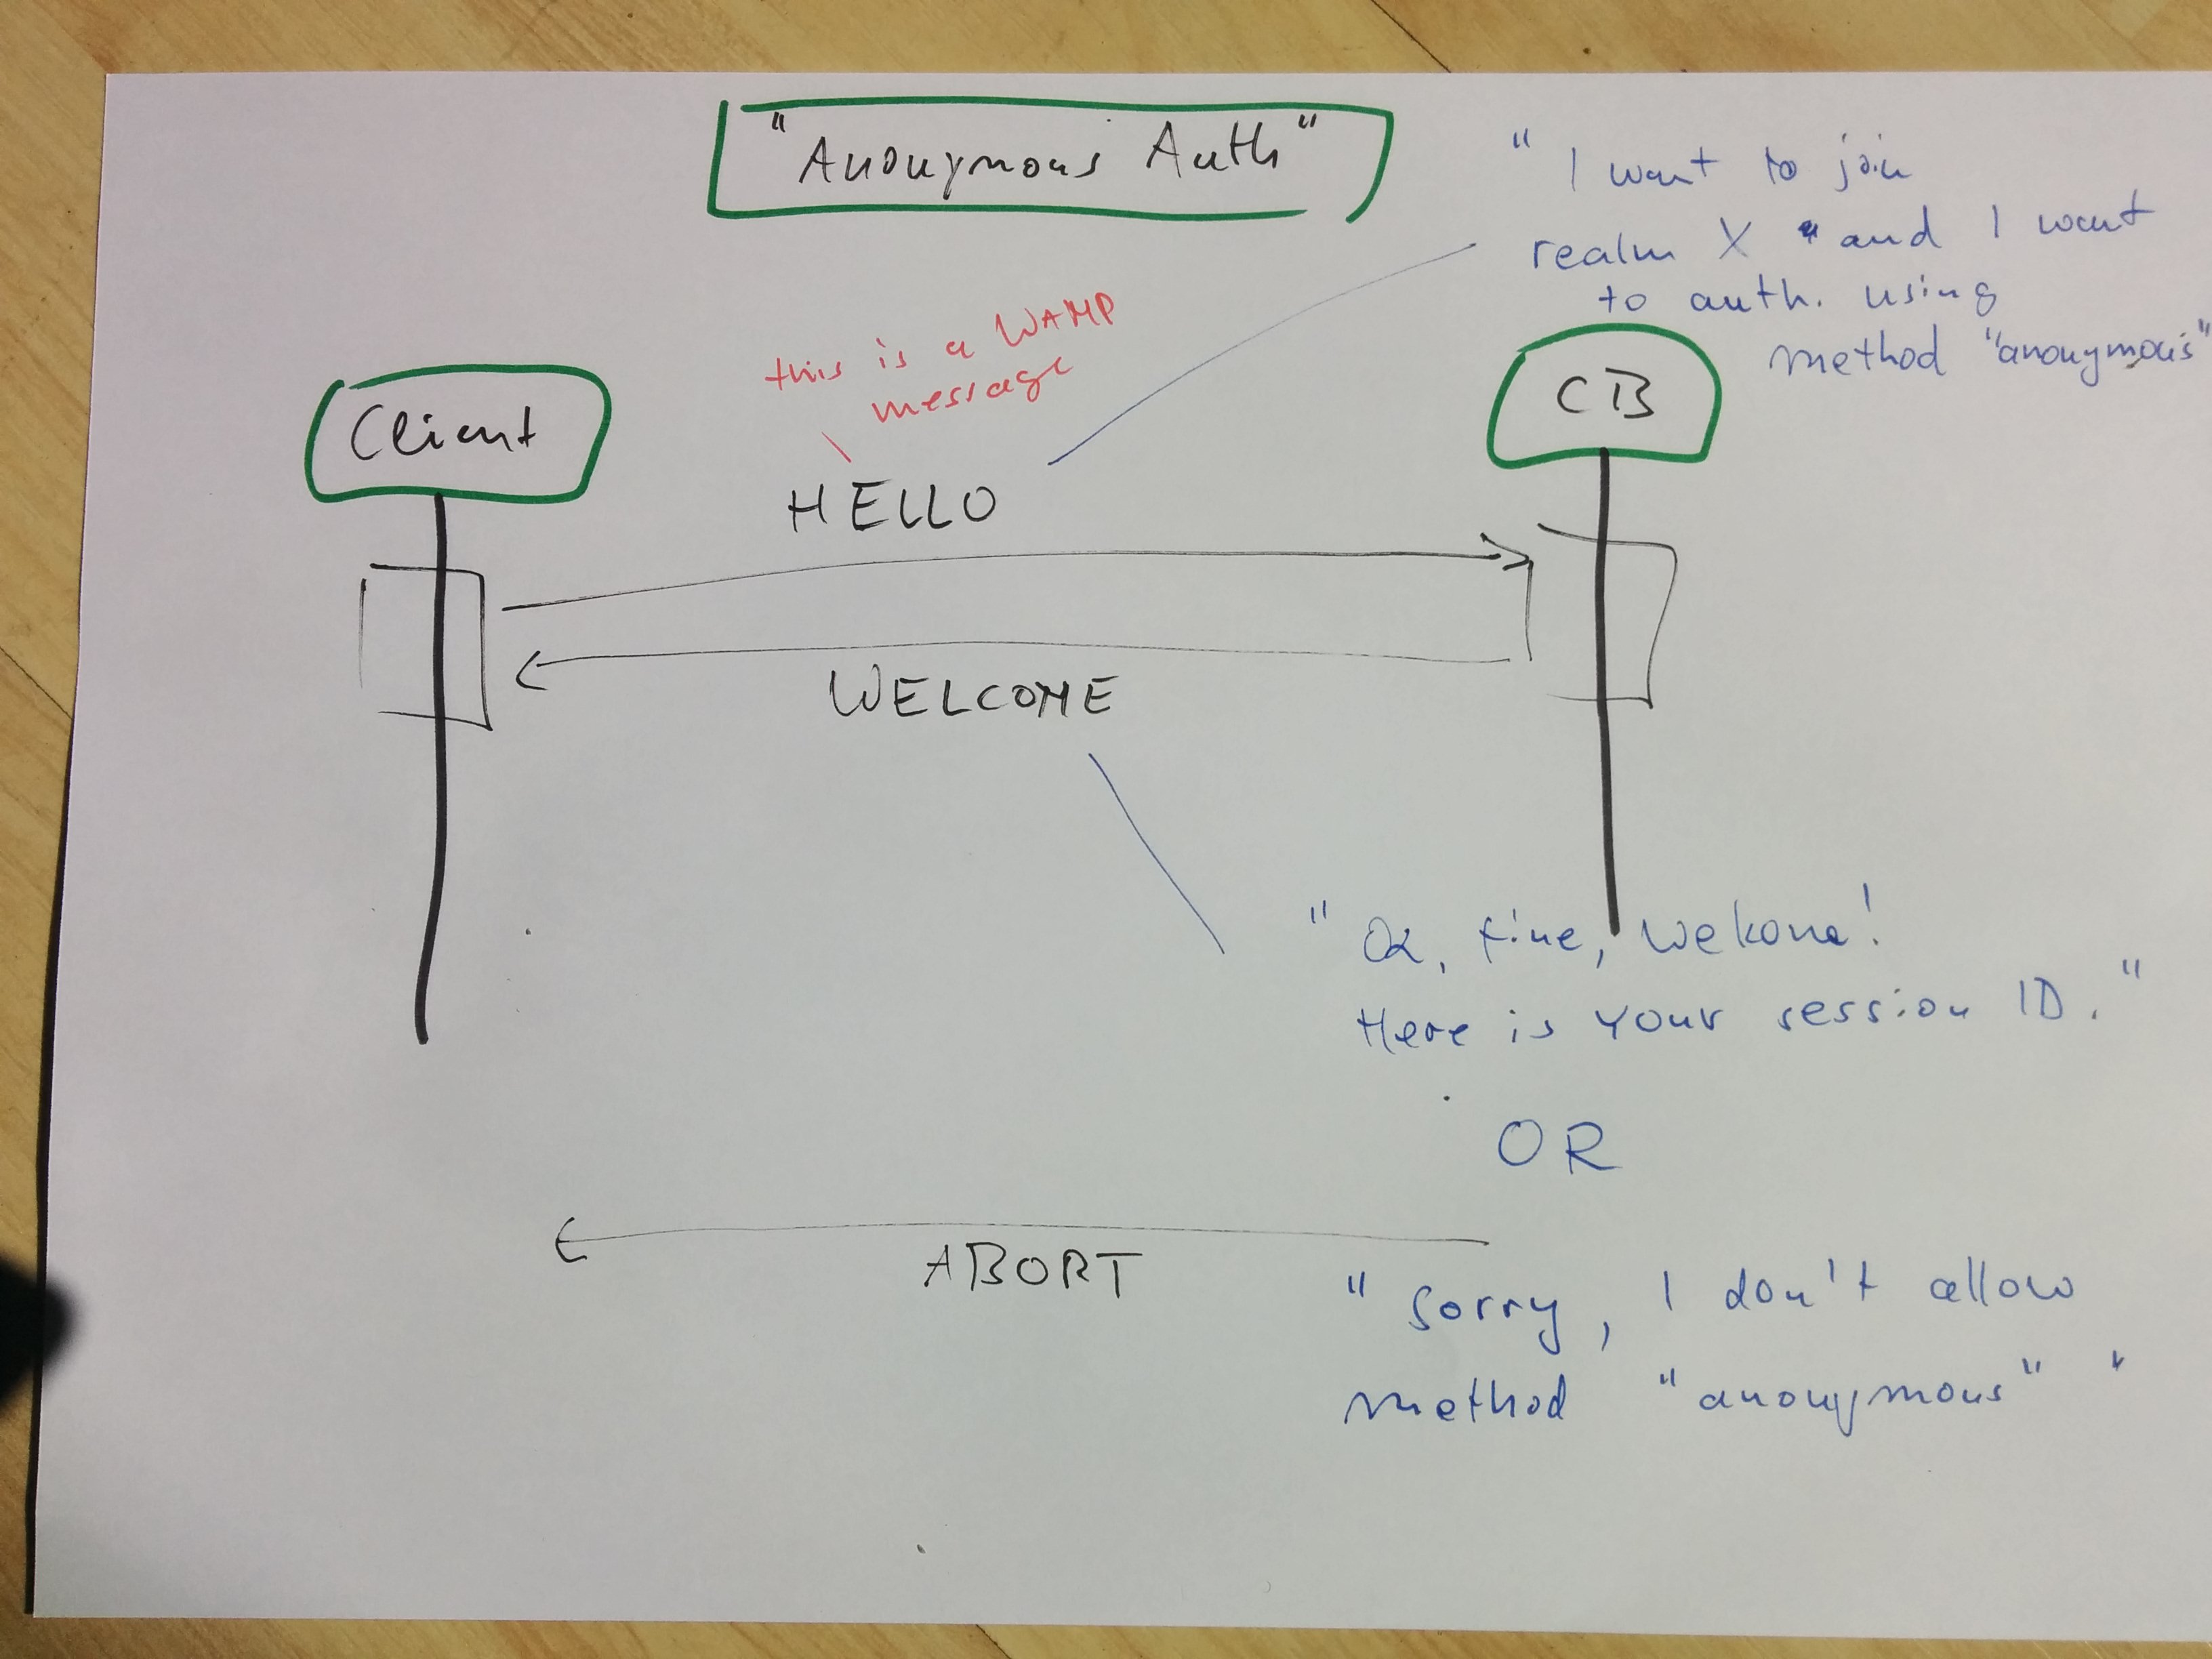 "Anonymous Auth"
"I want to join
realm X " and I want
to auth. using
method "anonymous"
this is a WAMP
message
Client
CB
HELLO
WELCOME
"Ok, fine, Welkome!
Here is your session ID."
OR
ABORT
"Sorry, I don't allow
method "anonymous" "